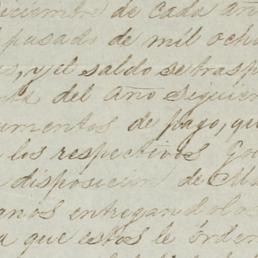 diciembre de cada añ
pasado de mil ocho
y el saldo se trasp
del año siguien
umentos de pago, qu
los respectivos Go
disposicion de Ma
anos entregandolos
a que estos le orden